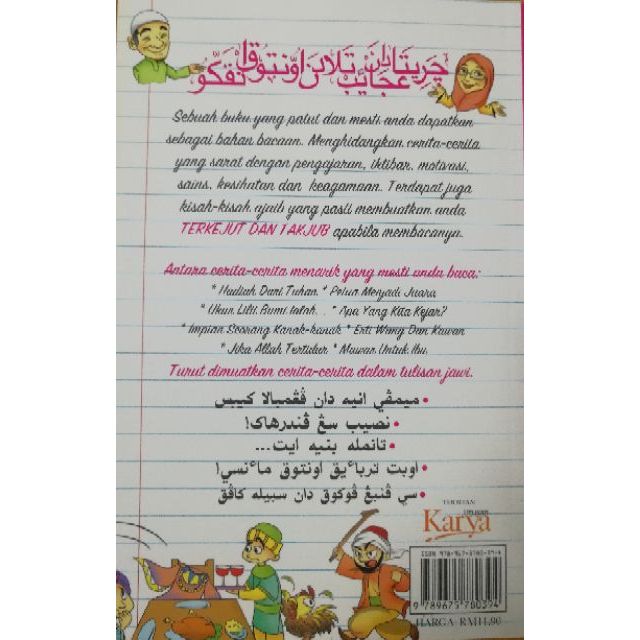 چريتا دان عجائب
Sebuah buku yang patut dan mesti anda dapatkan
sebagai bahan bacaan. Menghidangkan cerita-cerita
yang sarat dengan pengajaran, iktibar, motivasi,
sains, kesihatan dan keagamaan. Terdapat juga
kisah-kisah ajaib yang pasti membuatkan anda
TERKEJUT DAN TAKJUB apabila membacanya.
Antara cerita-cerita menarik yang mesti anda baca:
* Hadiah Dari Tuhan * Petua Menjadi Juara
* Ukur Lilit Bumi Ialah... * Apa Yang Kita Kejar?
* Impian Seorang Kanak-kanak * Erti Wang Dan Kawan
* Jika Allah Tertidur * Mawar Untuk Ibu
Turut dimuatkan cerita-cerita dalam tulisan jawi.
• ميمڤي انيه دان ڤڠمبالا كيبس
• نصيب سڠ ڤندرهاک!
• تانمله بنيه ايت...
• اوبت ترباءيق اونتوق ماءنسي!
• سي ڤنبڠ ڤوكوق دان سبيله كاڤق
TERBITAN
Karya
ISBN 978-967-5780-39-4
9 789675 780394
HARGA: